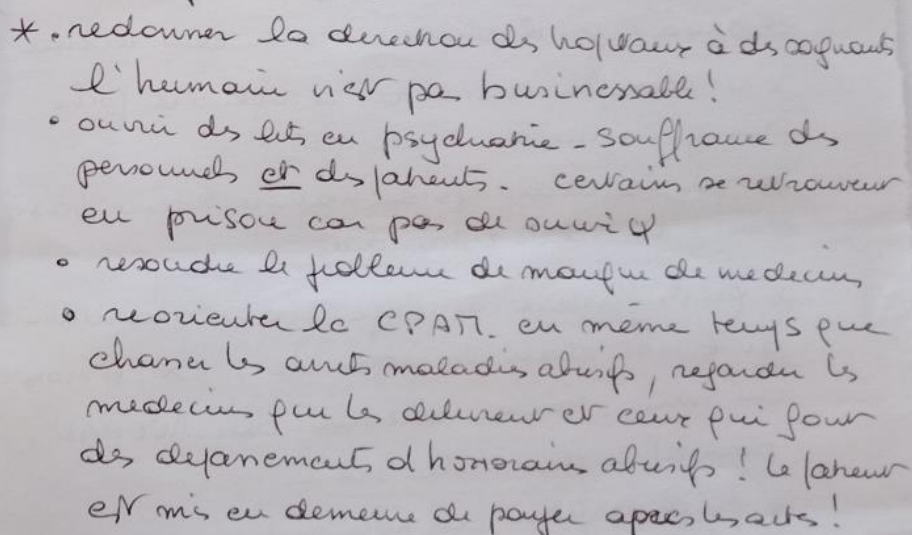 * . redonner la direction des hopitaux à des soignants
l'humain n'est pas businessable !
• ouvrir des lits en psychiatrie - Souffrance des
personnels et des patients. certains se retrouvent
en prison car pas de suivi ψ
• resoudre le probleme de manque de medecins
• reorienter la CPAM. en même temps que
chasser les arrets maladies abusifs, regarder les
medecins qui les delivrent et ceux qui font
des depassements d'honoraires abusifs ! le patient
est mis en demeure de payer apres les actes !